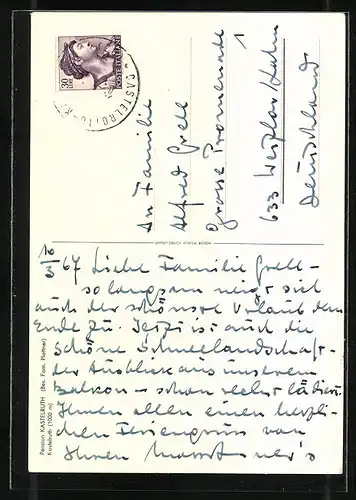 30
CASTELROTTO
An Familie
Alfred Grell
Grosse Promenade 1
633 Wetzlar/Lahn
Deutschland
10/3 67 Liebe Familie Grell -
so langsam neigt sich
auch der schönste Urlaub dem
Ende zu. Jetzt ist auch die
schöne Schneelandschaft -
der Ausblick aus unserem
Balkon - schon
Ihnen allen einen herzli-
chen Feriengruss von
Ihren
Pension KASTELRUTH (Bes. Fam. Plattner)
Kastelruth (1000 m)